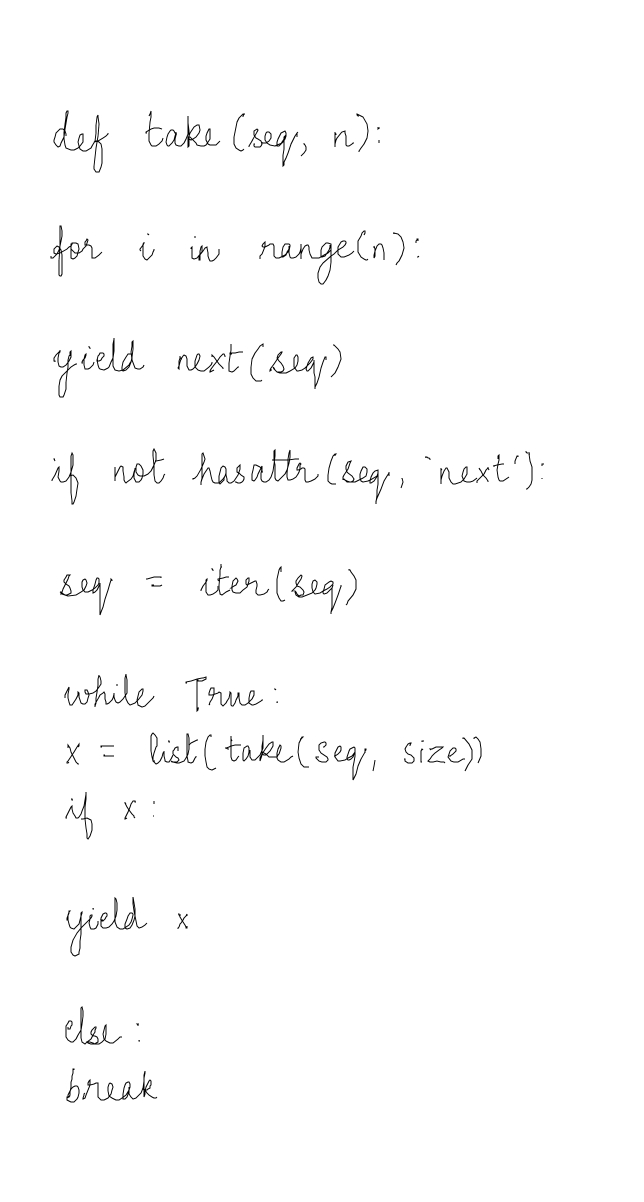 def take (seq, n):
for i in range(n):
yield next(seq)
if not hasattr(seq, `next'):
seq = iter(seq)
while True:
x = list(take(seq, size))
if x:
yield x
else:
break